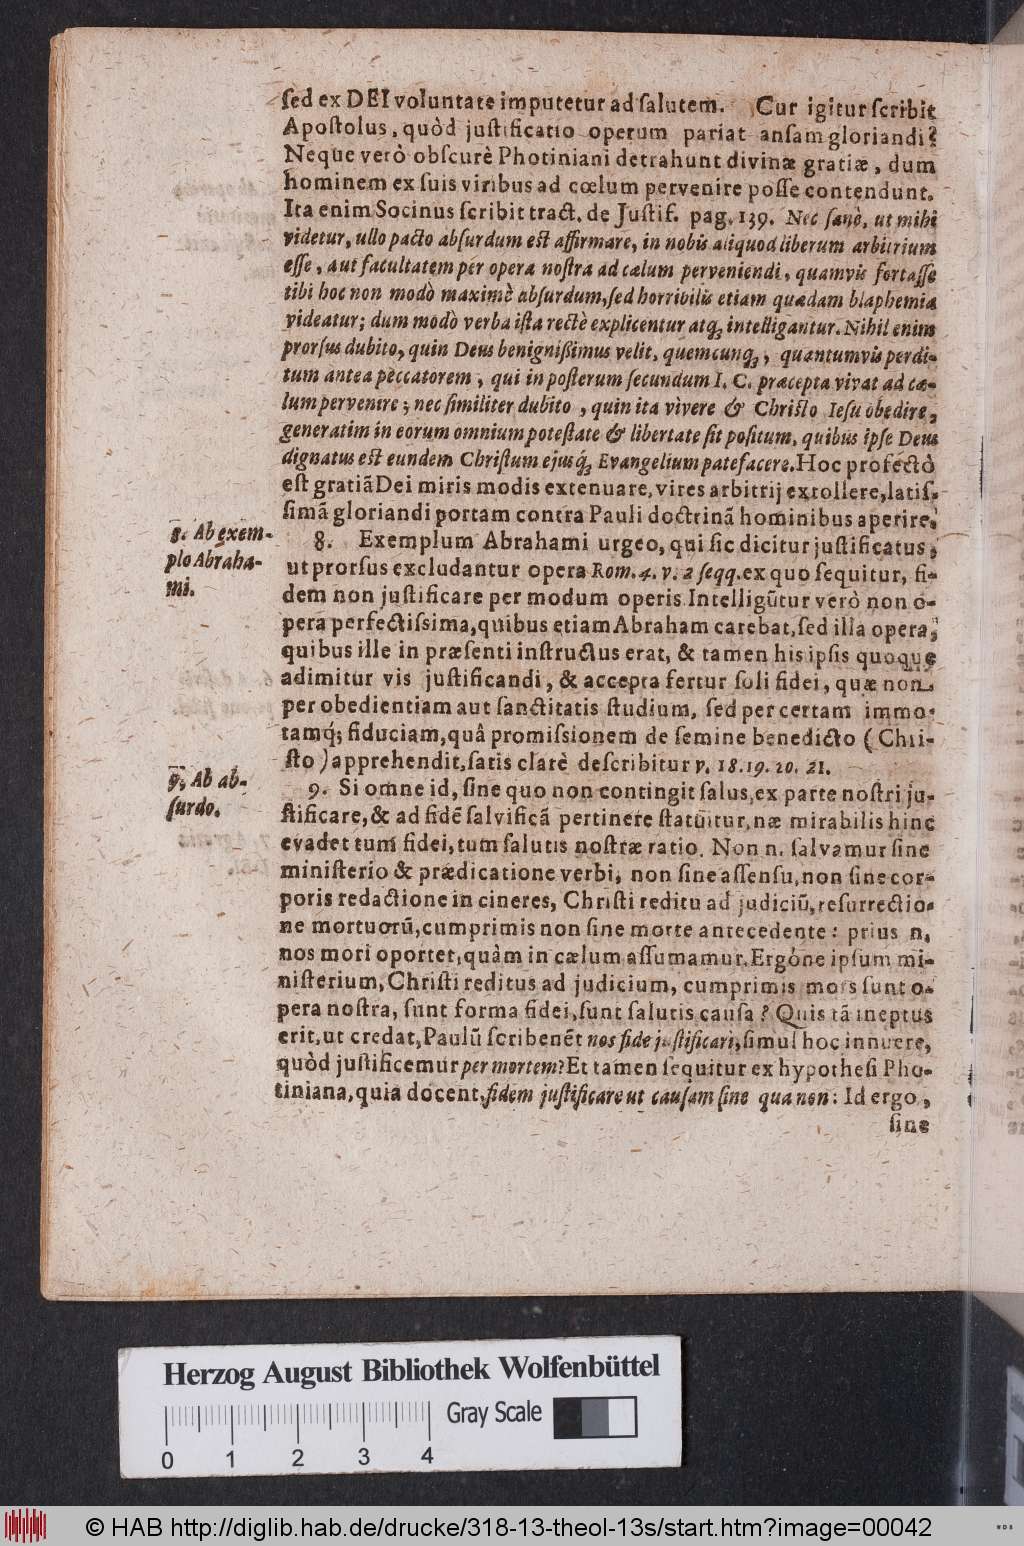 ſed ex DEI voluntate imputetur ad ſalutem. Cur igitur ſcribit
Apoſtolus, quòd juſtificatio operum pariat anſam gloriandi?
Neque verò obſcurè Photiniani detrahunt divinæ gratiæ, dum
hominem ex ſuis viribus ad cœlum pervenire poſſe contendunt.
Ita enim Socinus ſcribit tract. de Juſtif. pag. 139. Nec ſanè, ut mihi
videtur, ullo pacto abſurdum eſt affirmare, in nobis aliquod liberum arbitrium
eſſe, aut facultatem per opera noſtra ad cælum perveniendi, quamvis fortaſſe
tibi hoc non modò maximè abſurdum, ſed horribilis etiam quædam blaphemia
videatur; dum modò verba iſta rectè explicentur atq; intelligantur. Nihil enim
prorſus dubito, quin Deus benignißimus velit, quemcunq;, quantumvis perdi-
tum antea peccatorem, qui in poſterum ſecundum I. C. præcepta vivat ad cæ-
lum pervenire; nec ſimiliter dubito, quin ita vivere & Chriſto Ieſu obedire,
generatim in eorum omnium poteſtate & libertate ſit poſitum, quibus ipſe Deus
dignatus eſt eundem Chriſtum ejusq́; Evangelium patefacere. Hoc profectò
eſt gratiã Dei miris modis extenuare, vires arbitrij extollere, latiſ-
ſimã gloriandi portam contra Pauli doctrinã hominibus aperire.
8. Ab exem-
plo Abraha-
mi.
8. Exemplum Abrahami urgeo, qui ſic dicitur juſtificatus,
ut prorſus excludantur opera Rom. 4. v. 2 ſeqq. ex quo ſequitur, fi-
dem non juſtificare per modum operis Intelligũtur verò non o-
pera perfectiſsima, quibus etiam Abraham carebat, ſed illa opera,
quibus ille in præſenti inſtructus erat, & tamen his ipſis quoque
adimitur vis juſtificandi, & accepta fertur ſoli fidei, quæ non
per obedientiam aut ſanctitatis ſtudium, ſed per certam immo-
tamq́; fiduciam, quâ promiſsionem de ſemine benedicto (Chri-
ſto) apprehendit, ſatis clarè deſcribitur v. 18. 19. 20. 21.
9. Ab ab-
ſurdo.
9. Si omne id, ſine quo non contingit ſalus, ex parte noſtri ju-
ſtificare, & ad fidẽ ſalvificã pertinere ſtatuitur, næ mirabilis hinc
evadet tum fidei, tum ſalutis noſtræ ratio. Non n. ſalvamur ſine
miniſterio & prædicatione verbi, non ſine aſſenſu, non ſine cor-
poris redactione in cineres, Chriſti reditu ad judiciũ, reſurrectio-
ne mortuorũ, cumprimis non ſine morte antecedente: prius n.
nos mori oportet, quàm in cælum aſſumamur. Ergóne ipſum mi-
niſterium, Chriſti reditus ad judicium, cumprimis mors ſunt o-
pera noſtra, ſunt forma fidei, ſunt ſalutis cauſa? Quis tã ineptus
erit, ut credat, Paulũ ſcribenẽt nos fide juſtificari, ſimul hoc innuere,
quòd juſtificemur per mortem? Et tamen ſequitur ex hypotheſi Pho-
tiniana, quia docent, fidem juſtificare ut cauſam ſine qua non: Id ergo,
ſine
Herzog August Bibliothek Wolfenbüttel
Gray Scale
0 1 2 3 4
© HAB http://diglib.hab.de/drucke/318-13-theol-13s/start.htm?image=00042